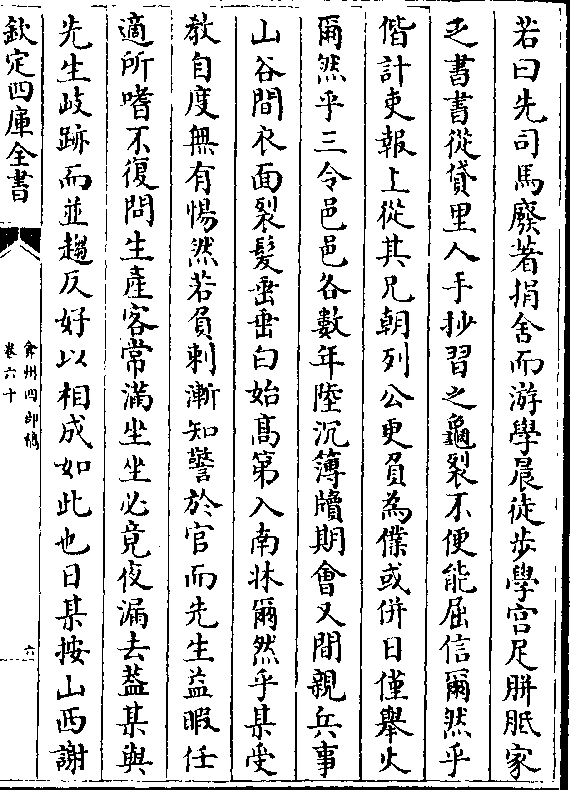 若曰先司馬廢著捐舍而游學晨徒步學宮足胼胝家
乏書書從貸里人手抄習之龜裂不便能屈信爾然乎
偕計吏報上從其兄朝列公更負為僕或併日僅舉火
爾然乎三令邑邑各數年陸沉簿牘期會又間親兵事
山谷間衣面裂髮垂垂白始髙第入南牀爾然乎某受
教自度無有惕然若負刺漸知警於官而先生益暇任
適所嗜不復問生產客常滿坐坐必竟夜漏去葢某與
先生歧跡而並趨反好以相成如此也日某按山西謝
欽定四庫全書
弇州四部稿
卷六十
六